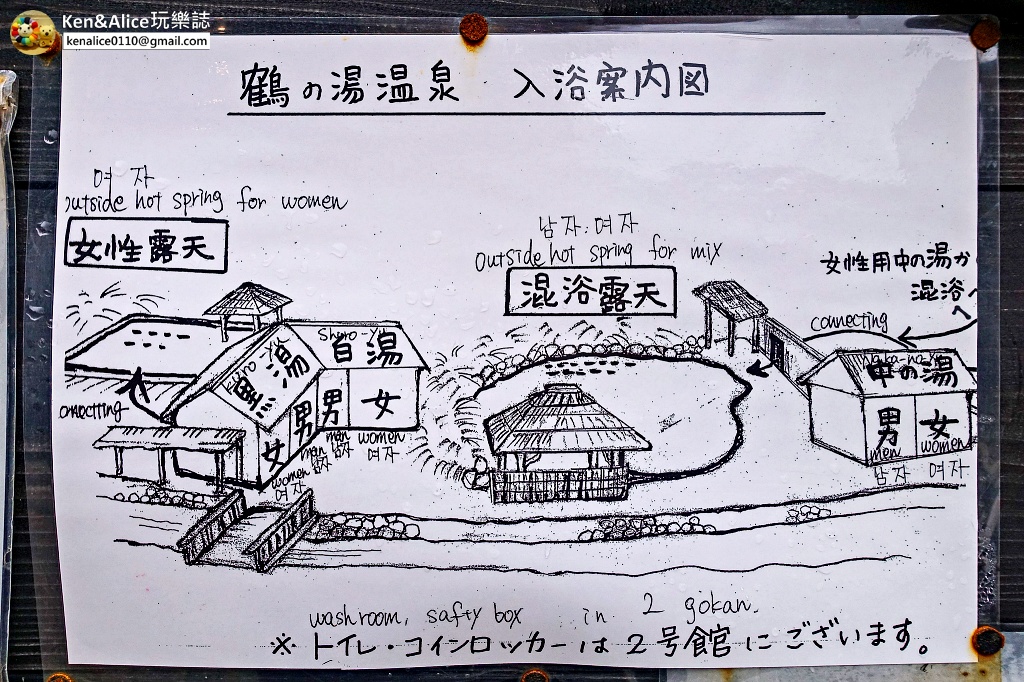 Ken&Alice玩樂誌
kenalice0110@gmail.com
鶴の湯温泉 入浴案内図
여 자
outside hot spring for women
女性露天
남자.여자
outside hot spring for mix
混浴露天
女性用中の湯か
混浴へ
connecting
Shiro-Yu
白湯
黒湯
Naka-no-Yu
中の湯
男
女
men
women
남자
여자
connecting
女
男
男
女
men
men
women
women
남자
남자
여자
여자
washroom, safty box in 2 gokan.
※トイレ・コインロッカーは2号館にございます。